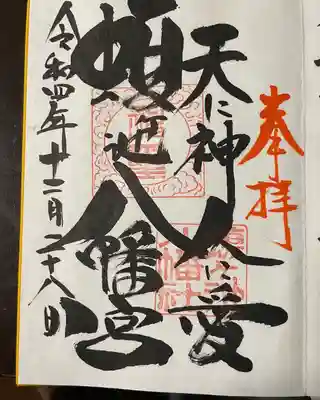 奉拝
天に神 人に愛
八幡宮
令和四年十二月二十八日
八幡社